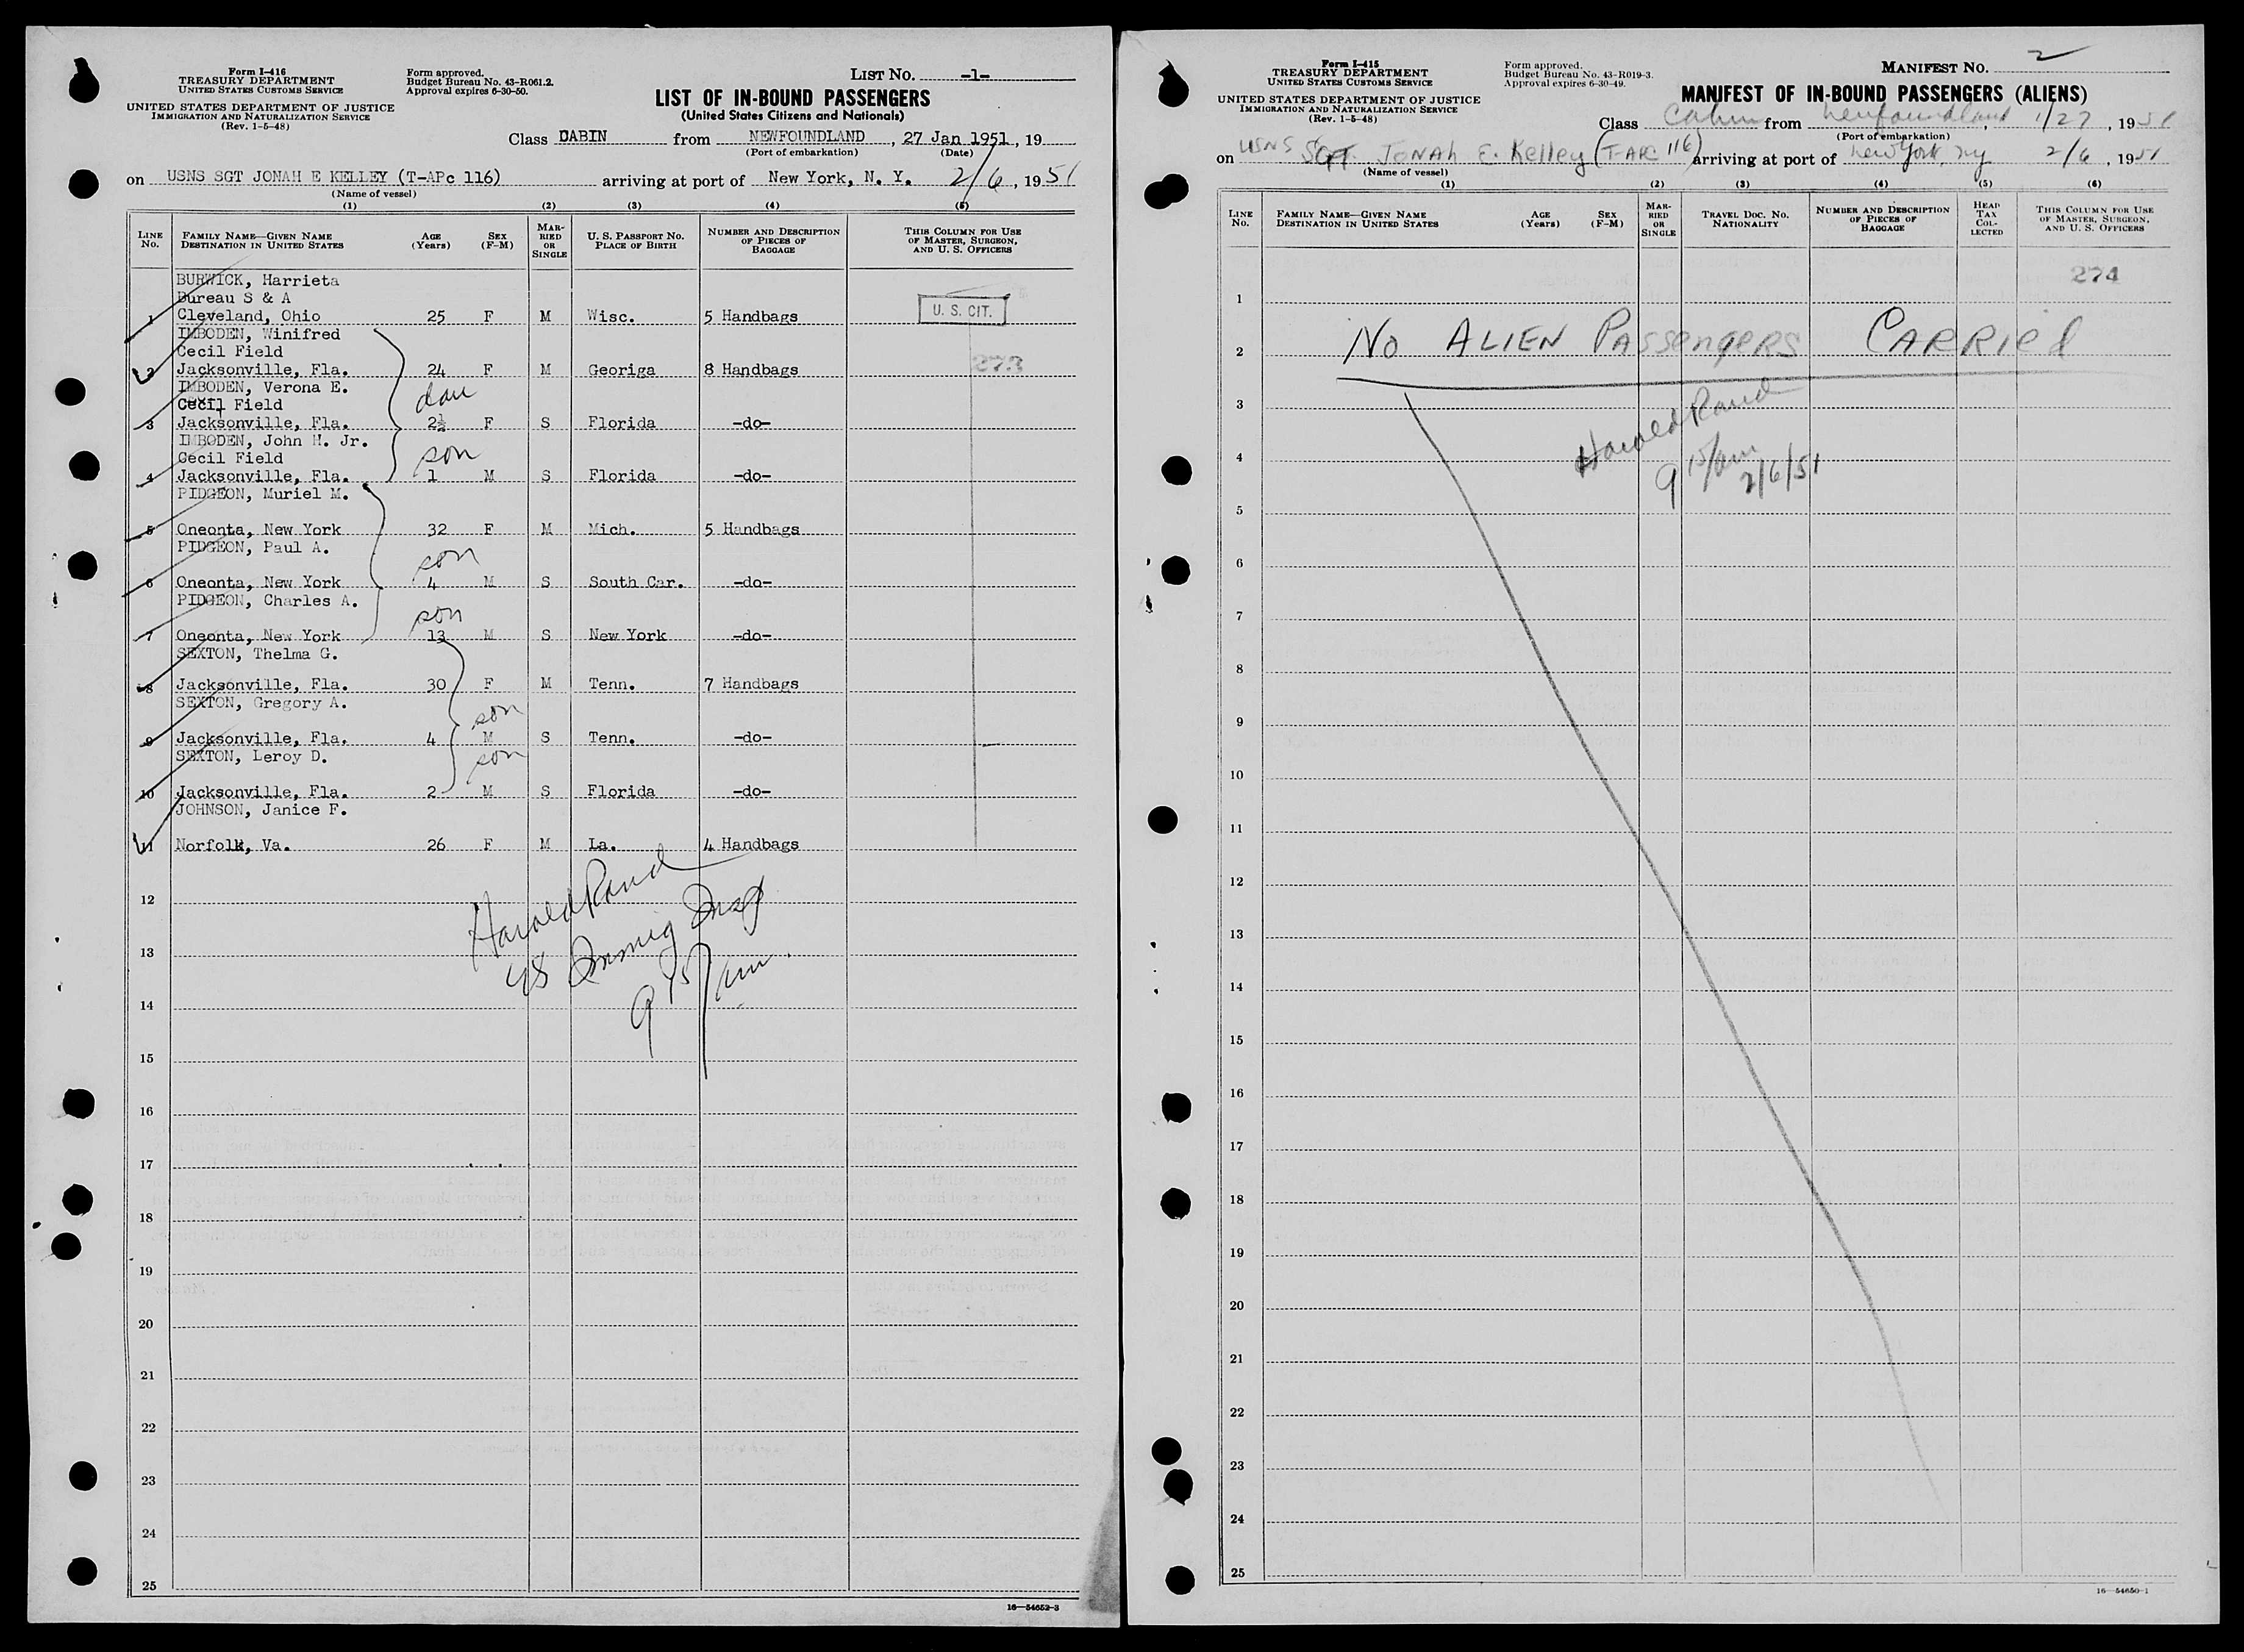 Form I-416
TREASURY DEPARTMENT
UNITED STATES CUSTOMS SERVICE
UNITED STATES DEPARTMENT OF JUSTICE
IMMIGRATION AND NATURALIZATION SERVICE
(Rev. 1-5-48)
Form approved.
Budget Bureau No. 43-R061.2.
Approval expires 6-30-50.
LIST NO. -1-
LIST OF IN-BOUND PASSENGERS
(United States Citizens and Nationals)
Class CABIN from NEWFOUNDLAND, 27 Jan 1951, 19
(Port of embarkation) (Date)
on USNS SGT JONAH E KELLEY (T-APc 116) arriving at port of New York, N. Y. 2/6, 1951
(Name of vessel)
(1) (2) (3) (4) (5)
LINE No. FAMILY NAME—GIVEN NAME DESTINATION IN UNITED STATES AGE (Years) SEX (F-M) MARRIED OR SINGLE U. S. PASSPORT NO. PLACE OF BIRTH NUMBER AND DESCRIPTION OF PIECES OF BAGGAGE THIS COLUMN FOR USE OF MASTER, SURGEON, AND U. S. OFFICERS
BURWICK, Harrieta
Bureau S & A
1 Cleveland, Ohio 25 F M Wisc. 5 Handbags U. S. CIT.
IMBODEN, Winifred
Cecil Field
2 Jacksonville, Fla. 24 F M Georiga 8 Handbags 273
IMBODEN, Verona E.
Cecil Field dau
3 Jacksonville, Fla. 2½ F S Florida -do-
IMBODEN, John H. Jr.
Cecil Field son
4 Jacksonville, Fla. 1 M S Florida -do-
PIDGEON, Muriel M.
5 Oneonta, New York 32 F M Mich. 5 Handbags
PIDGEON, Paul A.
son
6 Oneonta, New York 4 M S South Car. -do-
PIDGEON, Charles A.
son
7 Oneonta, New York 13 M S New York -do-
SEXTON, Thelma G.
8 Jacksonville, Fla. 30 F M Tenn. 7 Handbags
SEXTON, Gregory A.
son
9 Jacksonville, Fla. 4 M S Tenn. -do-
SEXTON, Leroy D.
son
10 Jacksonville, Fla. 2 M S Florida -do-
JOHNSON, Janice F.
11 Norfolk, Va. 26 F M La. 4 Handbags
Harold Rand
US Immig Insp
9 15/am
12
13
14
15
16
17
18
19
20
21
22
23
24
25
16—54652-3
Form I-415
TREASURY DEPARTMENT
UNITED STATES CUSTOMS SERVICE
UNITED STATES DEPARTMENT OF JUSTICE
IMMIGRATION AND NATURALIZATION SERVICE
(Rev. 1-5-48)
Form approved.
Budget Bureau No. 43-R019-3.
Approval expires 6-30-49.
MANIFEST NO. 2
MANIFEST OF IN-BOUND PASSENGERS (ALIENS)
Class Cabin from Newfoundland, 1/27, 1951
(Port of embarkation)
on USNS SGT. JONAh E. Kelley (T-APc 116) arriving at port of New York, NY 2/6, 1951
(Name of vessel)
(1) (2) (3) (4) (5) (6)
LINE No. FAMILY NAME—GIVEN NAME DESTINATION IN UNITED STATES AGE (Years) SEX (F-M) MARRIED OR SINGLE TRAVEL DOC. NO. NATIONALITY NUMBER AND DESCRIPTION OF PIECES OF BAGGAGE HEAD TAX COLLECTED THIS COLUMN FOR USE OF MASTER, SURGEON, AND U. S. OFFICERS
274
1
2 No ALIEN PAssengeRS CARRied
3 Harold Rand
4 9 15/am 2/6/51
5
6
7
8
9
10
11
12
13
14
15
16
17
18
19
20
21
22
23
24
25
16—54650-1